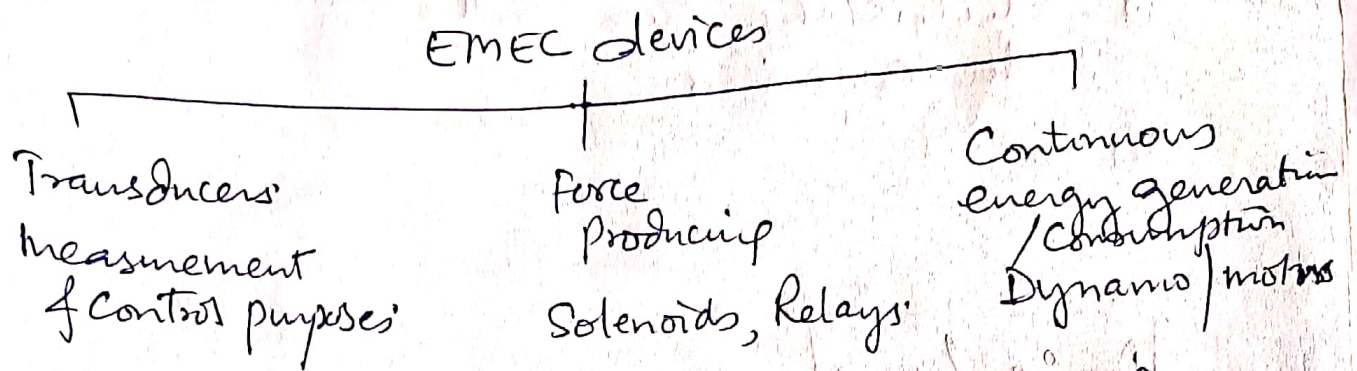 EMEC devices
Transducers
Measurement
& Control purposes
Force
Producing
Solenoids, Relays
Continuous
energy generation
/ Consumption
Dynamo / motors